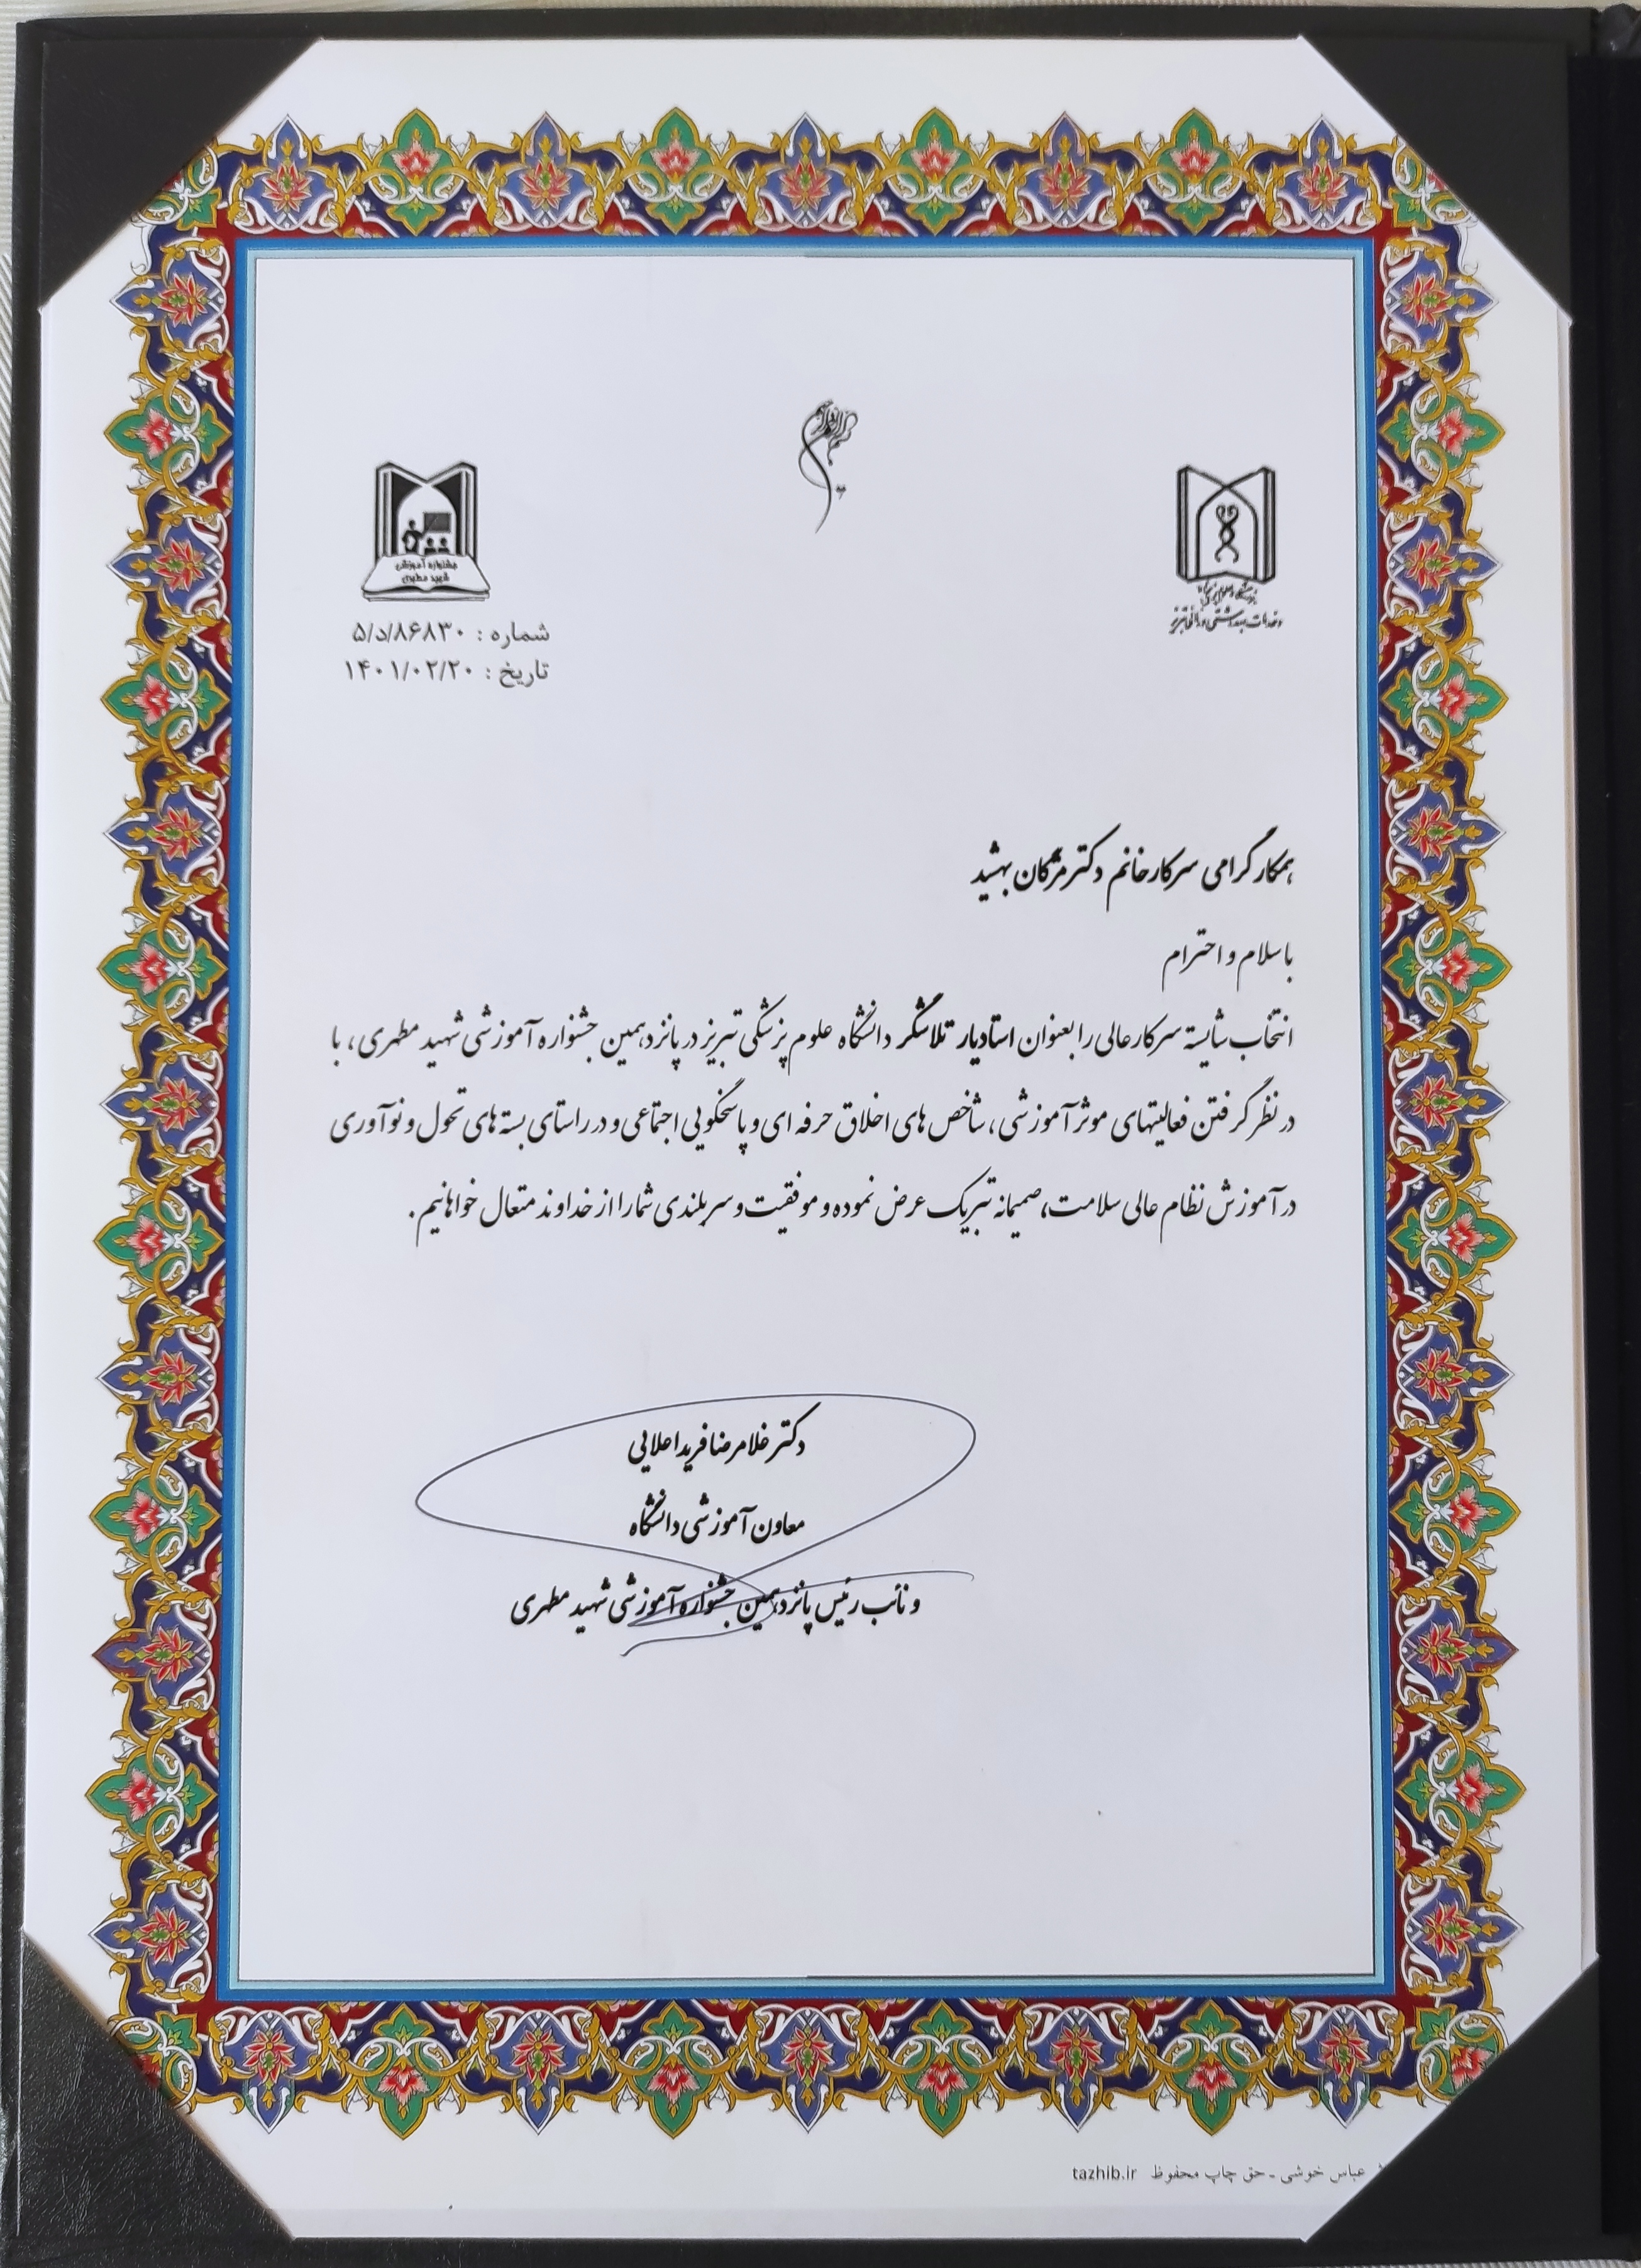 بسم الله الرحمن الرحیم
دانشگاه علوم پزشکی
و خدمات بهداشتی درمانی تبریز
جشنواره آموزشی
شهید مطهری
شماره : ۵/د/۸۶۸۳۰
تاریخ : ۱۴۰۱/۰۲/۲۰
همکار گرامی سرکار خانم دکتر مژگان بهشید
با سلام و احترام
انتخاب شایسته سرکار عالی را بعنوان استادیار تلاشگر دانشگاه علوم پزشکی تبریز در پانزدهمین جشنواره آموزشی شهید مطهری، با
در نظر گرفتن فعالیتهای موثر آموزشی، شاخص های اخلاق حرفه ای و پاسخگویی اجتماعی و در راستای بسته های تحول و نوآوری
در آموزش نظام عالی سلامت، صمیمانه تبریک عرض نموده و موفقیت و سربلندی شما را از خداوند متعال خواهانیم.
دکتر غلامرضا فرید اعلایی
معاون آموزشی دانشگاه
و نائب رئیس پانزدهمین جشنواره آموزشی شهید مطهری
عباس خوشی - حق چاپ محفوظ tazhib.ir